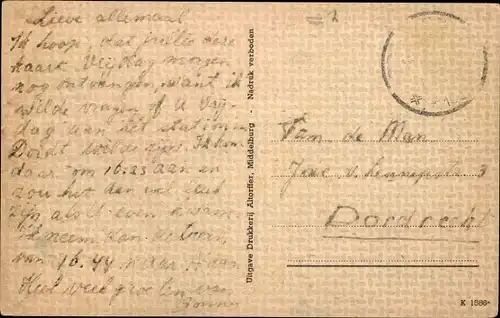 Lieve allemaal
Ik hoop, dat jullie deze
kaart Vrijdag morgen
nog ontvangen, want ik
wilde vragen of U Vrij-
dag aan het station
Dordt wilde zijn. Ik kom
daar om 16.23 aan en
zou het dan wel leuk
zijn als U even kwam.
Ik neem dan de trein
van 16.44 naar
Heel veel groeten van
Uitgave Drukkerij Altorffer, Middelburg - Nadruk verboden
Fam. de Man
3
Dordrecht
K 1586